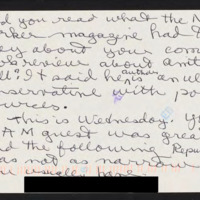 d you read what the N
rker magazine had t
ey about your com
ob review about anti
ll"? It said here author an ul
nservative with po
urces.
This is Wednesday. Y
AM guest was grea
nd the following Repu
as not as narrow
ou usually have.